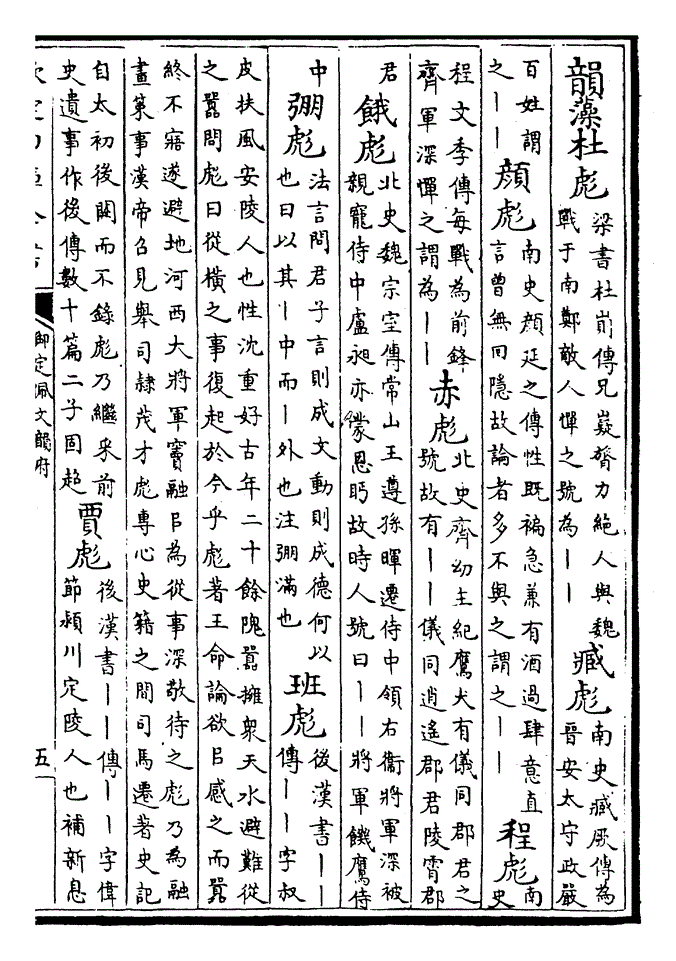 韻藻杜彪梁書杜崱傳兄嶷膂力絕人與魏
戰于南鄭敵人憚之號為丨丨臧彪南史臧厥傳為
晉安太守政嚴
百姓謂
之丨丨顔彪南史顔延之傳性既褊急兼有酒過肆意直
言曾無回隱故論者多不與之謂之丨丨程彪南
史
程文季傳每戰為前鋒
齊軍深憚之謂為丨丨赤彪北史齊幼主紀鷹犬有儀同郡君之
號故有丨丨儀同逍遙郡君陵霄郡
君餓彪北史魏宗室傳常山王遵孫暉遷侍中領右衞將軍深被
親寵侍中盧昶亦蒙恩眄故時人號曰丨丨將軍饑鷹侍
中弸彪法言問君子言則成文動則成德何以
也曰以其丨中而丨外也注弸滿也班彪後漢書丨丨
傳丨丨字叔
皮扶風安陵人也性沈重好古年二十餘隗囂擁衆天水避難從
之囂問彪曰從橫之事復起於今乎彪著王命論欲㠯感之而囂
終不寤遂避地河西大將軍竇融㠯為從事深敬待之彪乃為融
畫策事漢帝召見舉司隸茂才彪專心史籍之間司馬遷著史記
自太初後闕而不錄彪乃繼采前
史遺事作後傳數十篇二子固超賈彪後漢書丨丨傳丨丨字偉
節潁川定陵人也補新息
御定佩文韻府
五